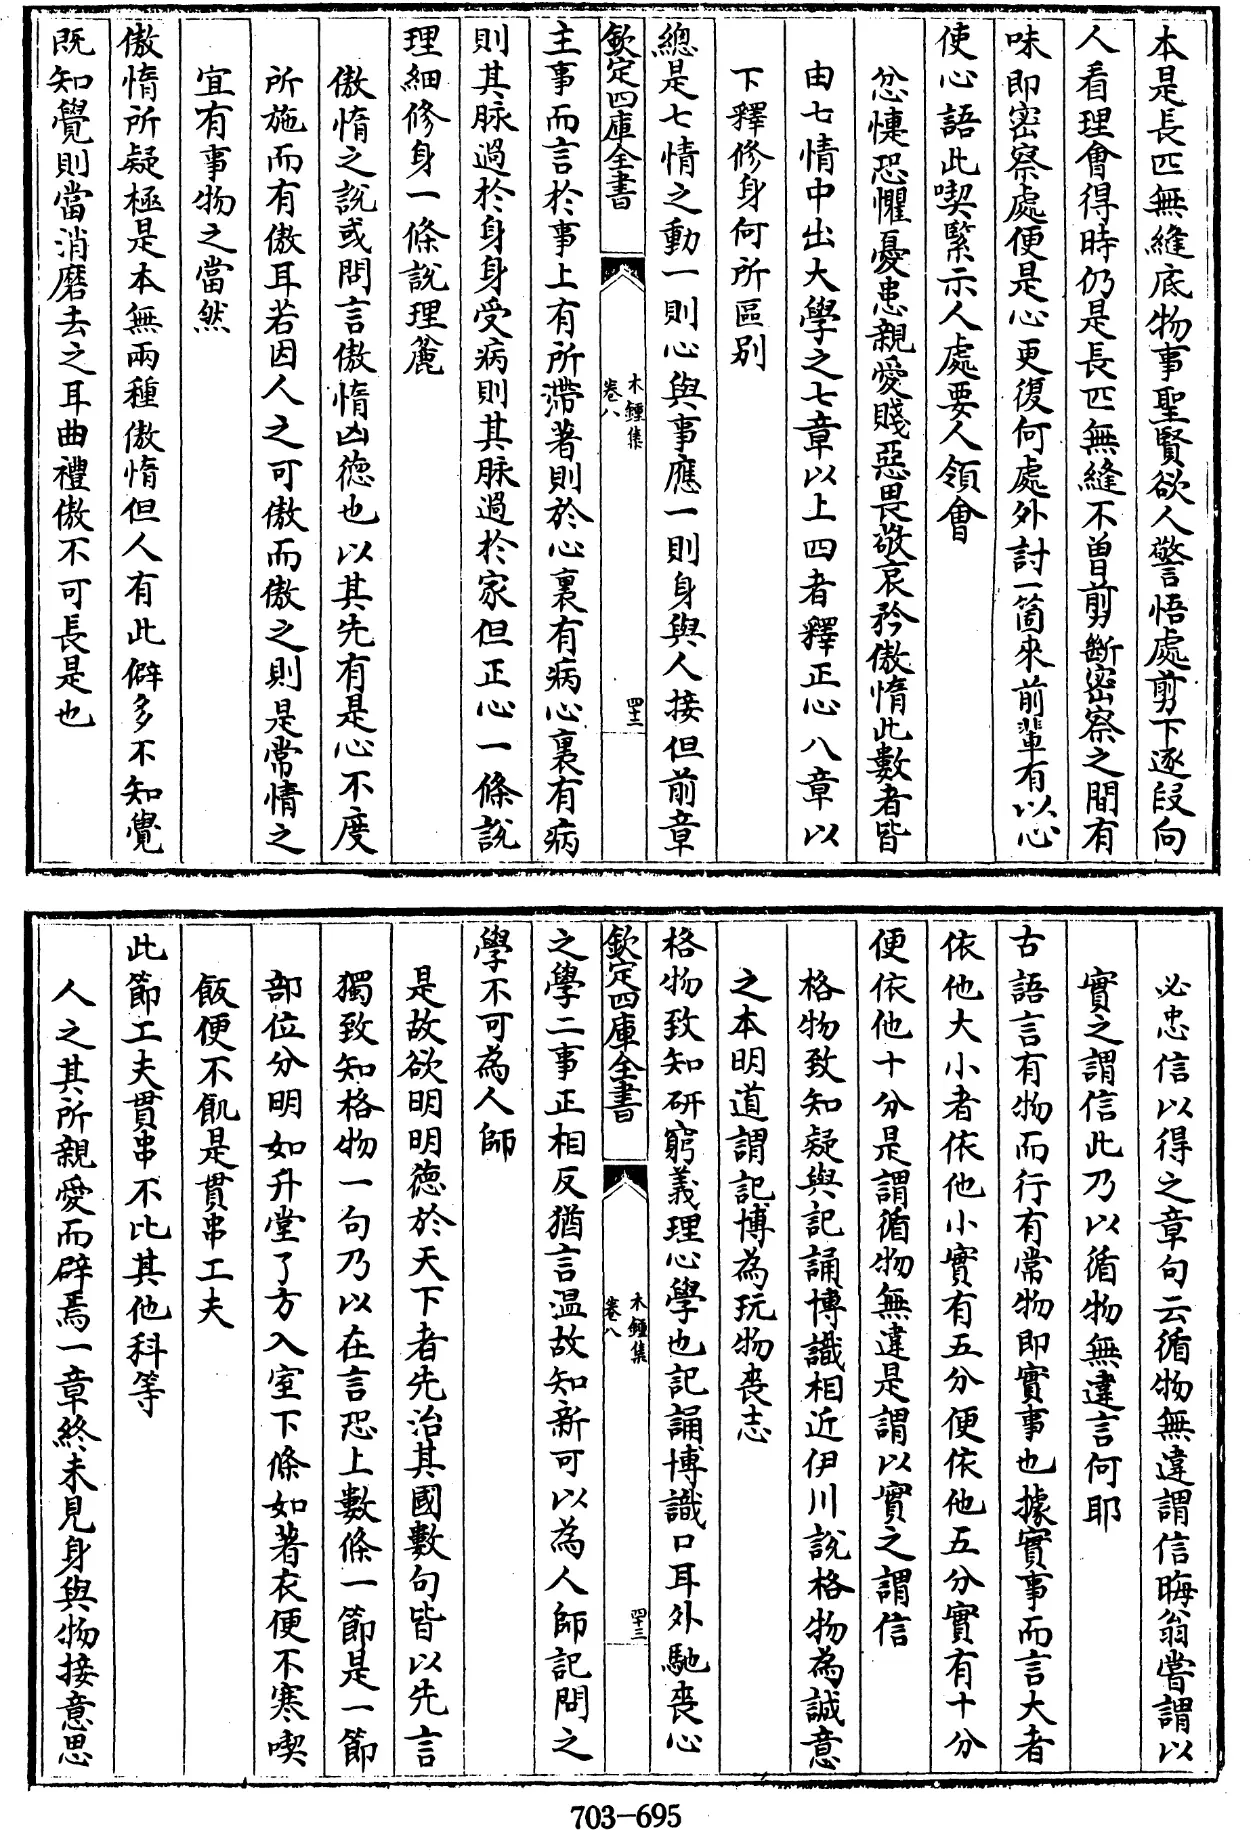 本是長匹無縫底物事聖賢欲人警悟處剪下逐段向
人看理會得時仍是長匹無縫不曾剪斷密察之間有
味即密察處便是心更復何處外討一箇來前輩有以心
使心語此喫緊示人處要人領會
忿懥恐懼憂患親愛賤惡畏敬哀矜傲惰此數者皆
由七情中出大學之七章以上四者釋正心八章以
下釋修身何所區别
總是七情之動一則心與事應一則身與人接但前章
欽定四庫全書
木鍾集
卷八
四十二
主事而言於事上有所滯著則於心裏有病心裏有病
則其脉過於身身受病則其脉過於家但正心一條説
理細修身一條説理麄
傲惰之説或問言傲惰凶德也以其先有是心不度
所施而有傲耳若因人之可傲而傲之則是常情之
宜有事物之當然
傲惰所疑極是本無兩種傲惰但人有此僻多不知覺
既知覺則當消磨去之耳曲禮傲不可長是也
必忠信以得之章句云循物無違謂信晦翁嘗謂以
實之謂信此乃以循物無違言何耶
古語言有物而行有常物即實事也據實事而言大者
依他大小者依他小實有五分便依他五分實有十分
便依他十分是謂循物無違是謂以實之謂信
格物致知疑與記誦博識相近伊川説格物為誠意
之本明道謂記博為玩物喪志
格物致知研窮義理心學也記誦博識口耳外馳喪心
欽定四庫全書
木鍾集
卷八
四十三
之學二事正相反猶言温故知新可以為人師記問之
學不可為人師
是故欲明明德於天下者先治其國數句皆以先言
獨致知格物一句乃以在言恐上數條一節是一節
部位分明如升堂了方入室下條如著衣便不寒喫
飯便不飢是貫串工夫
此節工夫貫串不比其他科等
人之其所親愛而辟焉一章終未見身與物接意思
703-695